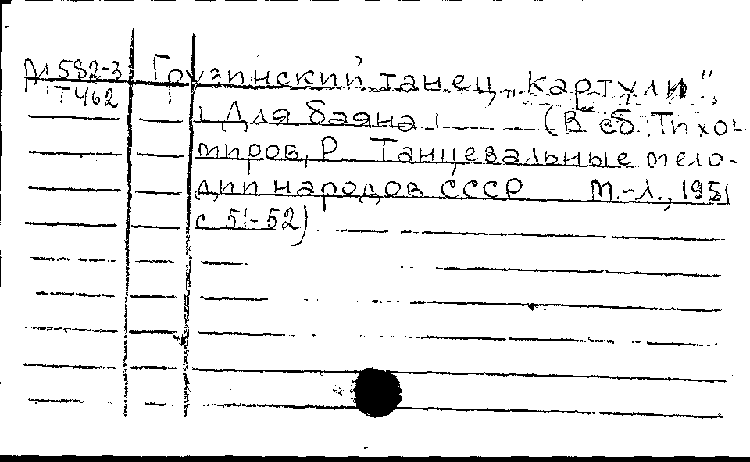 М582-3 Грузинский танец „Картули",
Т462
Для баяна (В сб.: Тихо-
миров, Р. Танцевальные мело-
дии народов СССР М.-Л., 1951
с 51-52)